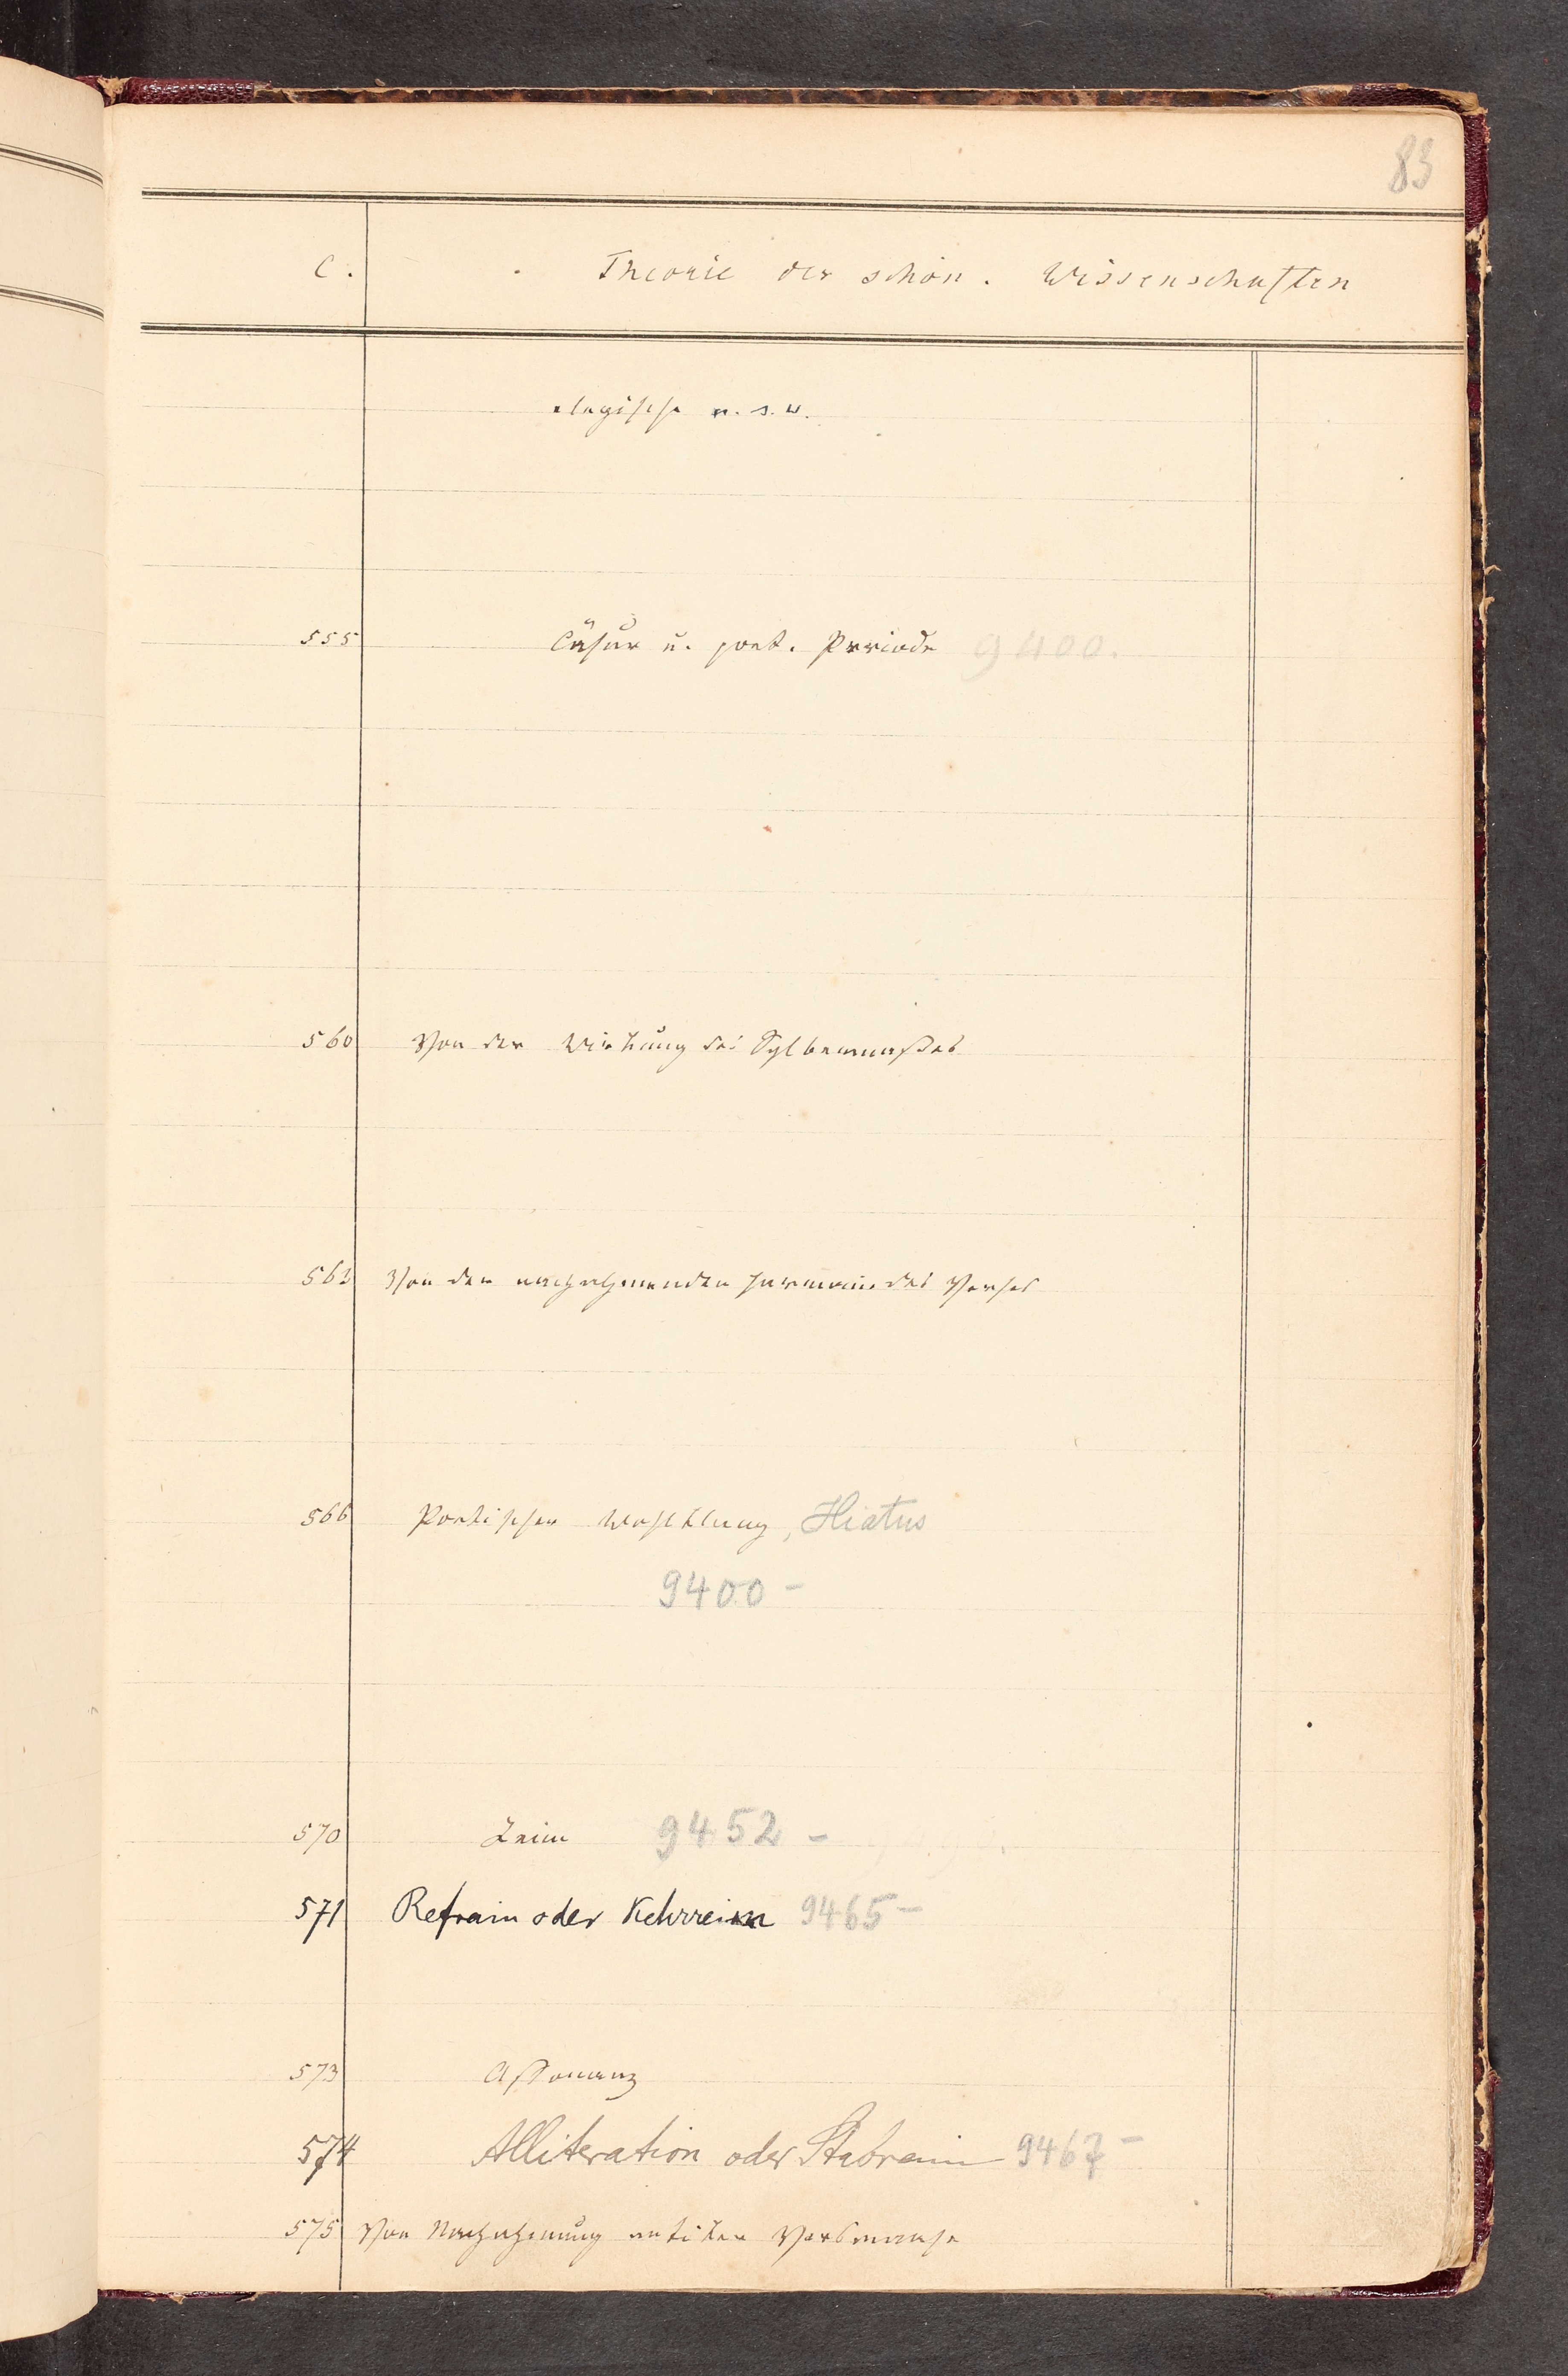 83
C. Theorie der schön. Wissenschaften
elegische u. s. w.
555 Cäsur u. poet. Periode 9400.
560 Von der Wirkung des Sylbenmaßes
563 Von der nachahmenden Harmonie des Verses
566 Poetischer Wohlklang, Hiatus
9400 -
570 Reim 9452 -
571 Refrain oder Kehrreim 9465 -
573 Assonanz
574 Alliteration oder Stabreim 9467 -
575 Von Nachahmung antiker Versmaße